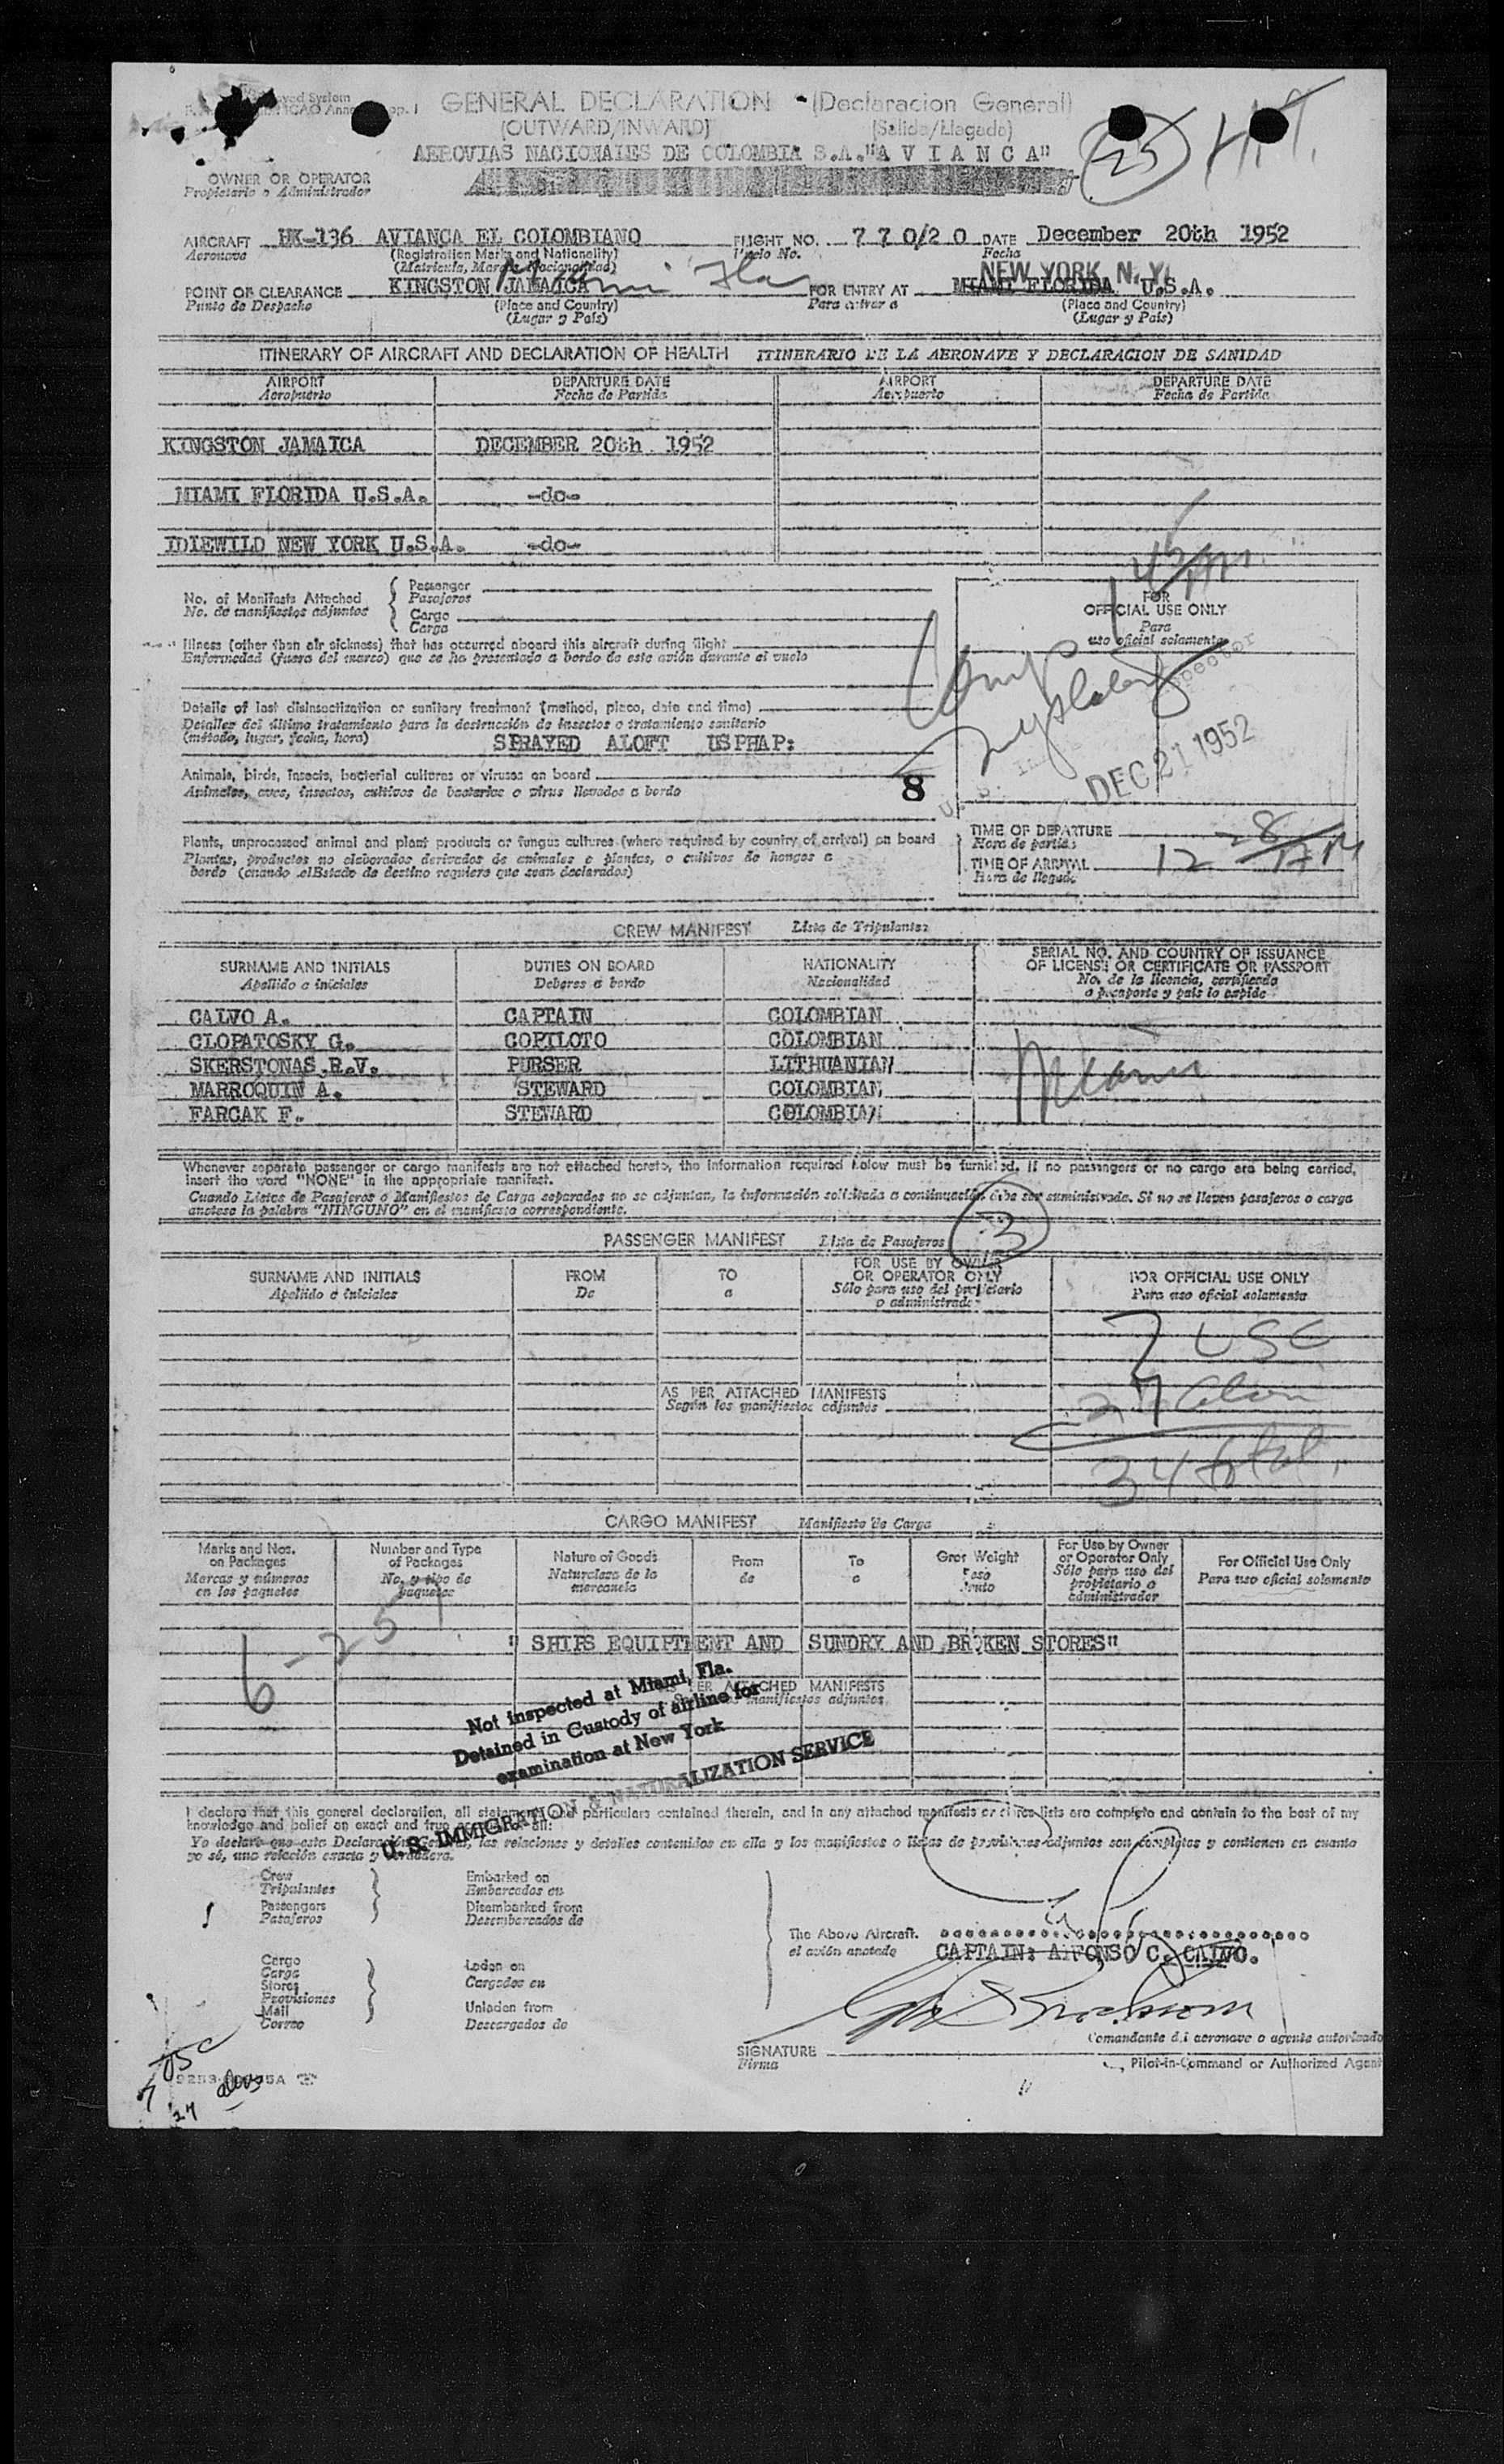 GENERAL DECLARATION - (Declaracion General)
(OUTWARD/INWARD) (Salida/Llegada)
AEROVIAS NACIONALES DE COLOMBIA S.A."A V I A N C A"
(25)
OWNER OR OPERATOR
Propietario o Administrador
AIRCRAFT HK-136 AVIANCA EL COLOMBIANO FLIGHT NO. 7 7 0/2 0 DATE December 20th 1952
Aeronave (Registration Marks and Nationality) Vuelo No. Fecha
(Matricula, Marcas Nacionalidad)
Miami Fla NEW YORK N.Y.
POINT OF CLEARANCE KINGSTON JAMAICA FOR ENTRY AT MIAMI FLORIDA U.S.A.
Punto de Despacho (Place and Country) Para entrar a (Place and Country)
(Lugar y País) (Lugar y País)
ITINERARY OF AIRCRAFT AND DECLARATION OF HEALTH ITINERARIO DE LA AERONAVE Y DECLARACION DE SANIDAD
AIRPORT DEPARTURE DATE AIRPORT DEPARTURE DATE
Aeropuerto Fecha de Partida Aeropuerto Fecha de Partida
KINGSTON JAMAICA DECEMBER 20th. 1952
MIAMI FLORIDA U.S.A. -do-
IDLEWILD NEW YORK U.S.A. -do-
No. of Manifests Attached { Passenger
No. de manifiestos adjuntos Pasajeros
Cargo
Carga
FOR
OFFICIAL USE ONLY
Para
uso oficial solamente
Illness (other than air sickness) that has occurred aboard this aircraft during flight
Enfermedad (fuera del mareo) que se ha presentado a bordo de este avión durante el vuelo
Details of last disinsectization or sanitary treatment (method, place, date and time)
Detalles del último tratamiento para la destrucción de insectos o tratamiento sanitario
(método, lugar, fecha, hora) SPRAYED ALOFT USPHAP:
DEC 21 1952
Animals, birds, insects, bacterial cultures or viruses on board
Animales, aves, insectos, cultivos de bacterias o virus llevados a bordo 8
Plants, unprocessed animal and plant products or fungus cultures (where required by country of arrival) on board
Plantas, productos no elaborados derivados de animales o plantas, o cultivos de hongos a
bordo (cuando el Estado de destino requiere que sean declarados)
TIME OF DEPARTURE
Hora de partida
TIME OF ARRIVAL 12 28 AM
Hora de llegada
CREW MANIFEST Lista de Tripulantes
SURNAME AND INITIALS DUTIES ON BOARD NATIONALITY SERIAL NO. AND COUNTRY OF ISSUANCE
OF LICENSE OR CERTIFICATE OR PASSPORT
Apellido e iniciales Deberes a bordo Nacionalidad No. de la licencia, certificado
o pasaporte y pais lo expide
CALVO A. CAPTAIN COLOMBIAN
CLOPATOSKY G. COPILOTO COLOMBIAN
SKERSTONAS R.V. PURSER LITHUANIAN Miami
MARROQUIN A. STEWARD COLOMBIAN
FARCAK F. STEWARD COLOMBIAN
Whenever separate passenger or cargo manifests are not attached hereto, the information required below must be furnished. If no passengers or no cargo are being carried,
insert the word "NONE" in the appropriate manifest.
Cuando Listas de Pasajeros o Manifiestos de Carga separados no se adjuntan, la información solicitada a continuación debe ser suministrada. Si no se llevan pasajeros o carga
anotese la palabra "NINGUNO" en el manifiesto correspondiente.
PASSENGER MANIFEST Lista de Pasajeros 3
SURNAME AND INITIALS FROM TO FOR USE BY OWNER
OR OPERATOR ONLY FOR OFFICIAL USE ONLY
Apellido e iniciales De a Sólo para uso del propietario
o administrador Para uso oficial solamente
7 USC
AS PER ATTACHED MANIFESTS 27 alien
Según los manifiestos adjuntos
34 total
CARGO MANIFEST Manifiesto de Carga
Marks and Nos.
on Packages
Marcas y números
en los paquetes
Number and Type
of Packages
No. y tipo de
paquetes
Nature of Goods
Naturaleza de la
mercancia
From
de
To
a
Gros Weight
Peso
bruto
For Use by Owner
or Operator Only
Sólo para uso del
propietario o
administrador
For Official Use Only
Para uso oficial solamente
" SHIPS EQUIPTMENT AND SUNDRY AND BROKEN STORES"
AS PER ATTACHED MANIFESTS
Según los manifiestos adjuntos
Not inspected at Miami, Fla.
Detained in Custody of airline for
examination at New York
U. S. IMMIGRATION & NATURALIZATION SERVICE
I declare that this general declaration, all statements and particulars contained therein, and in any attached manifests or stores lists are complete and contain to the best of my
knowledge and belief an exact and true account of all:
Yo declaro que esta Declaración General, las relaciones y detalles contenidos en ella y los manifiestos o listas de provisiones adjuntos son completas y contienen en cuanto
yo sé, una relación exacta y verdadera.
Crew
Tripulantes
Passengers
Pasajeros
Embarked on
Embarcados en
Disembarked from
Desembarcados de
Cargo
Carga
Stores
Provisiones
Mail
Correo
Laden on
Cargados en
Unladen from
Descargados de
The Above Aircraft.
el avión anotado CAPTAIN: ALFONSO C. CALVO.
Comandante de aeronave o agente autorizado
SIGNATURE
Firma Pilot-in-Command or Authorized Agent
7 USC
27 alens